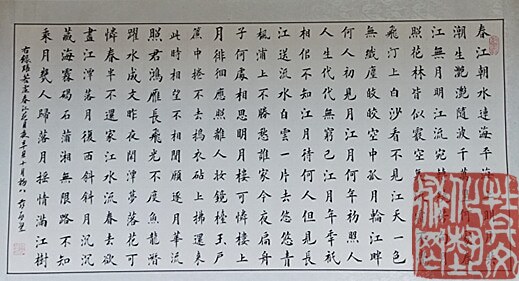 春江朝水連海平海
潮生灔灔隨波千萬
江無月明江流宛
照花林皆似霰空
飛汀上白沙看不見江天一色
無纖塵皎皎空中孤月輪江畔
何人初見月江月何年初照人
人生代代無窮已江月年年祗
相似不知江月待何人但見長
江送流水白雲一片去悠悠青
楓浦上不勝愁誰家今夜扁舟
子何處相思明月樓可憐樓上
月徘徊應照離人妝鏡檯玉戶
簾中捲不去搗衣砧上拂還來
此時相望不相聞願逐月華流
照君鴻雁長飛光不度魚龍潛
躍水成文昨夜閒潭夢落花可
憐春半不還家江水流春去欲
盡江潭落月復西斜斜月沉沉
藏海霧碣石瀟湘無限路不知
乘月幾人歸落月搖情滿江樹
右錄張若虛春江花月夜